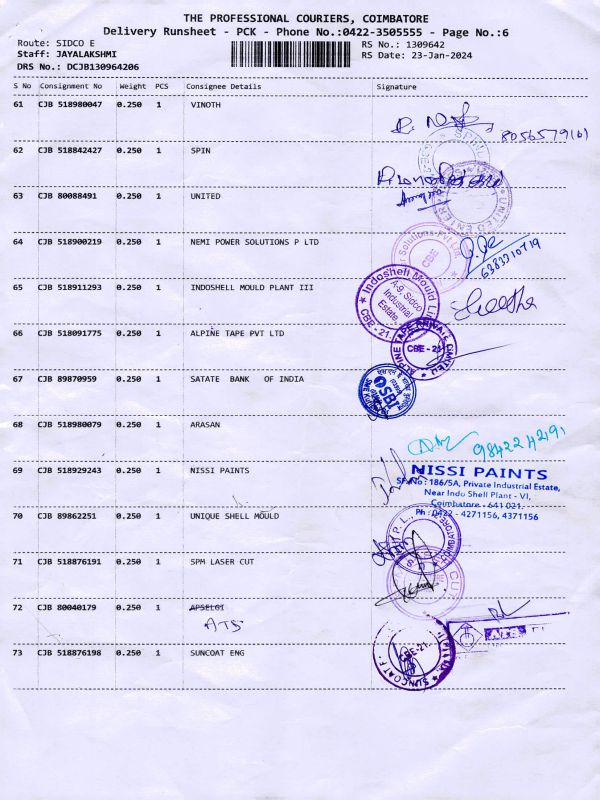 THE PROFESSIONAL COURIERS, COIMBATORE
Delivery Runsheet - PCK - Phone No.:0422-3505555 - Page No.:6
Route: SIDCO E
RS No.: 1309642
Staff: JAYALAKSHMI
RS Date: 23-Jan-2024
DRS No.: DCJB130964206
S No Consignment No Weight PCS Consignee Details Signature
61 CJB 518980047 0.250 1 VINOTH
8056579161
62 CJB 518842427 0.250 1 SPIN
63 CJB 80088491 0.250 1 UNITED
UNITED ENTER
64 CJB 518900219 0.250 1 NEMI POWER SOLUTIONS P LTD
Solutions Pvt Ltd.
CBE
6383310719
65 CJB 518911293 0.250 1 INDOSHELL MOULD PLANT III
Indoshell Mould Limi
A-9, Sidco
Industrial
Estate,
CBE - 21.
66 CJB 518091775 0.250 1 ALPINE TAPE PVT LTD
ALPINE TAPE PRIVATE LIMITED
CBE - 21
67 CJB 89870959 0.250 1 SATATE BANK OF INDIA
SBI
68 CJB 518980079 0.250 1 ARASAN
9842242191
69 CJB 518929243 0.250 1 NISSI PAINTS
NISSI PAINTS
SF.No : 186/5A, Private Industrial Estate,
Near Indo Shell Plant - VI,
Coimbatore - 641 021.
Ph : 0422 - 4271156, 4371156
70 CJB 89862251 0.250 1 UNIQUE SHELL MOULD
71 CJB 518876191 0.250 1 SPM LASER CUT
72 CJB 80040179 0.250 1 APSELGI
ATS
73 CJB 518876198 0.250 1 SUNCOAT ENG
CBE-21.
SUNCOAT